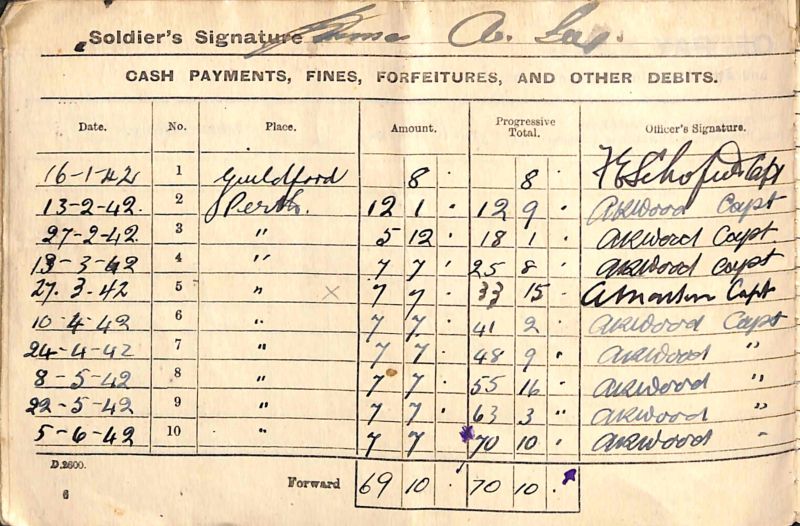 Soldier's Signature A. Lee.
CASH PAYMENTS, FINES, FORFEITURES, AND OTHER DEBITS.
Date. No. Place. Amount. Progressive Total. Officer's Signature.
16-1-42 1 Guildford 8 . 8 . Capt
13-2-42. 2 Perth. 12 1 . 12 9 . AKWood Capt
27-2-42. 3 " 5 12 . 18 1 . AKWood Capt
13-3-42 4 " 7 7 . 25 8 . AKWood Capt
27.3.42 5 " x 7 7 . 33 15 . Capt
10-4-42 6 " 7 7 . 41 2 . AKWood Capt
24-4-42 7 " 7 7 . 48 9 . AKWood "
8-5-42 8 " 7 7 . 55 16 . AKWood "
22-5-42 9 " 7 7 . 63 3 " AKWood "
5-6-42 10 " 7 7 70 10 . AKWood "
D.2600.
Forward 69 10 . 70 10 .
6